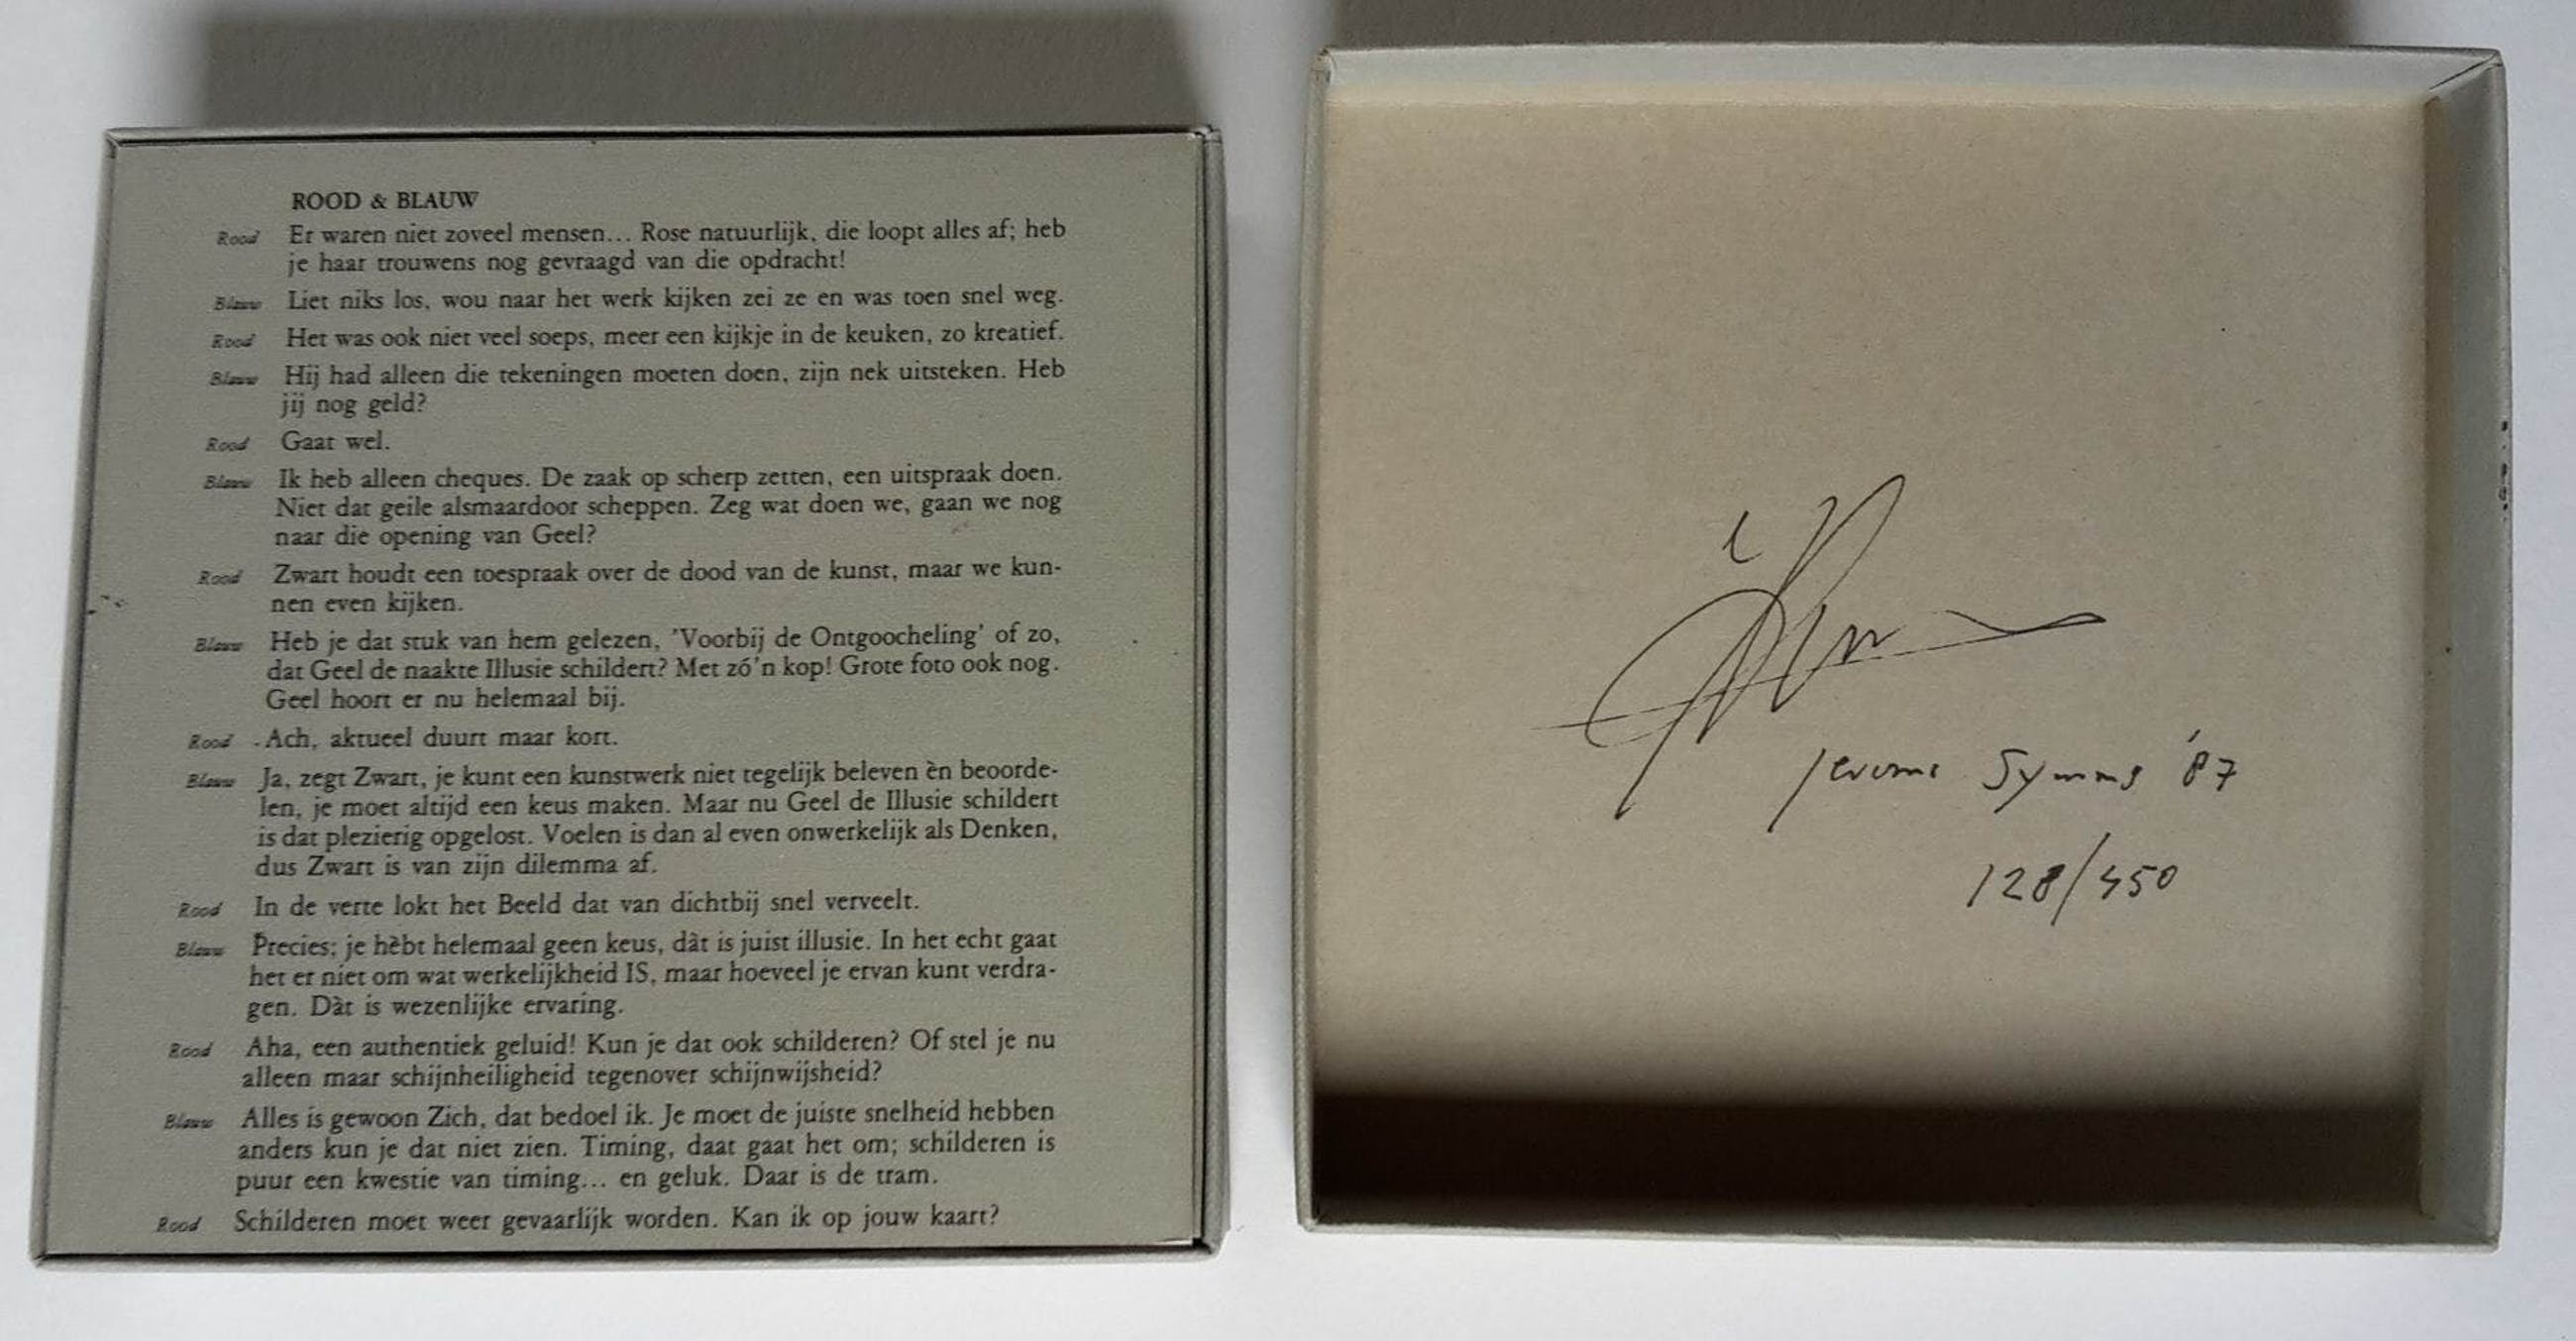 ROOD & BLAUW
Rood Er waren niet zoveel mensen... Rose natuurlijk, die loopt alles af; heb
je haar trouwens nog gevraagd van die opdracht!
Blauw Liet niks los, wou naar het werk kijken zei ze en was toen snel weg.
Rood Het was ook niet veel soeps, meer een kijkje in de keuken, zo kreatief.
Blauw Hij had alleen die tekeningen moeten doen, zijn nek uitsteken. Heb
jij nog geld?
Rood Gaat wel.
Blauw Ik heb alleen cheques. De zaak op scherp zetten, een uitspraak doen.
Niet dat geile alsmaardoor scheppen. Zeg wat doen we, gaan we nog
naar die opening van Geel?
Rood Zwart houdt een toespraak over de dood van de kunst, maar we kun-
nen even kijken.
Blauw Heb je dat stuk van hem gelezen, 'Voorbij de Ontgoocheling' of zo,
dat Geel de naakte Illusie schildert? Met zó'n kop! Grote foto ook nog.
Geel hoort er nu helemaal bij.
Rood Ach, aktueel duurt maar kort.
Blauw Ja, zegt Zwart, je kunt een kunstwerk niet tegelijk beleven èn beoorde-
len, je moet altijd een keus maken. Maar nu Geel de Illusie schildert
is dat plezierig opgelost. Voelen is dan al even onwerkelijk als Denken,
dus Zwart is van zijn dilemma af.
Rood In de verte lokt het Beeld dat van dichtbij snel verveelt.
Blauw Precies; je hèbt helemaal geen keus, dàt is juist illusie. In het echt gaat
het er niet om wat werkelijkheid IS, maar hoeveel je ervan kunt verdra-
gen. Dàt is wezenlijke ervaring.
Rood Aha, een authentiek geluid! Kun je dat ook schilderen? Of stel je nu
alleen maar schijnheiligheid tegenover schijnwijsheid?
Blauw Alles is gewoon Zich, dat bedoel ik. Je moet de juiste snelheid hebben
anders kun je dat niet zien. Timing, daat gaat het om; schilderen is
puur een kwestie van timing... en geluk. Daar is de tram.
Rood Schilderen moet weer gevaarlijk worden. Kan ik op jouw kaart?
Jerome Symms '87
128/450